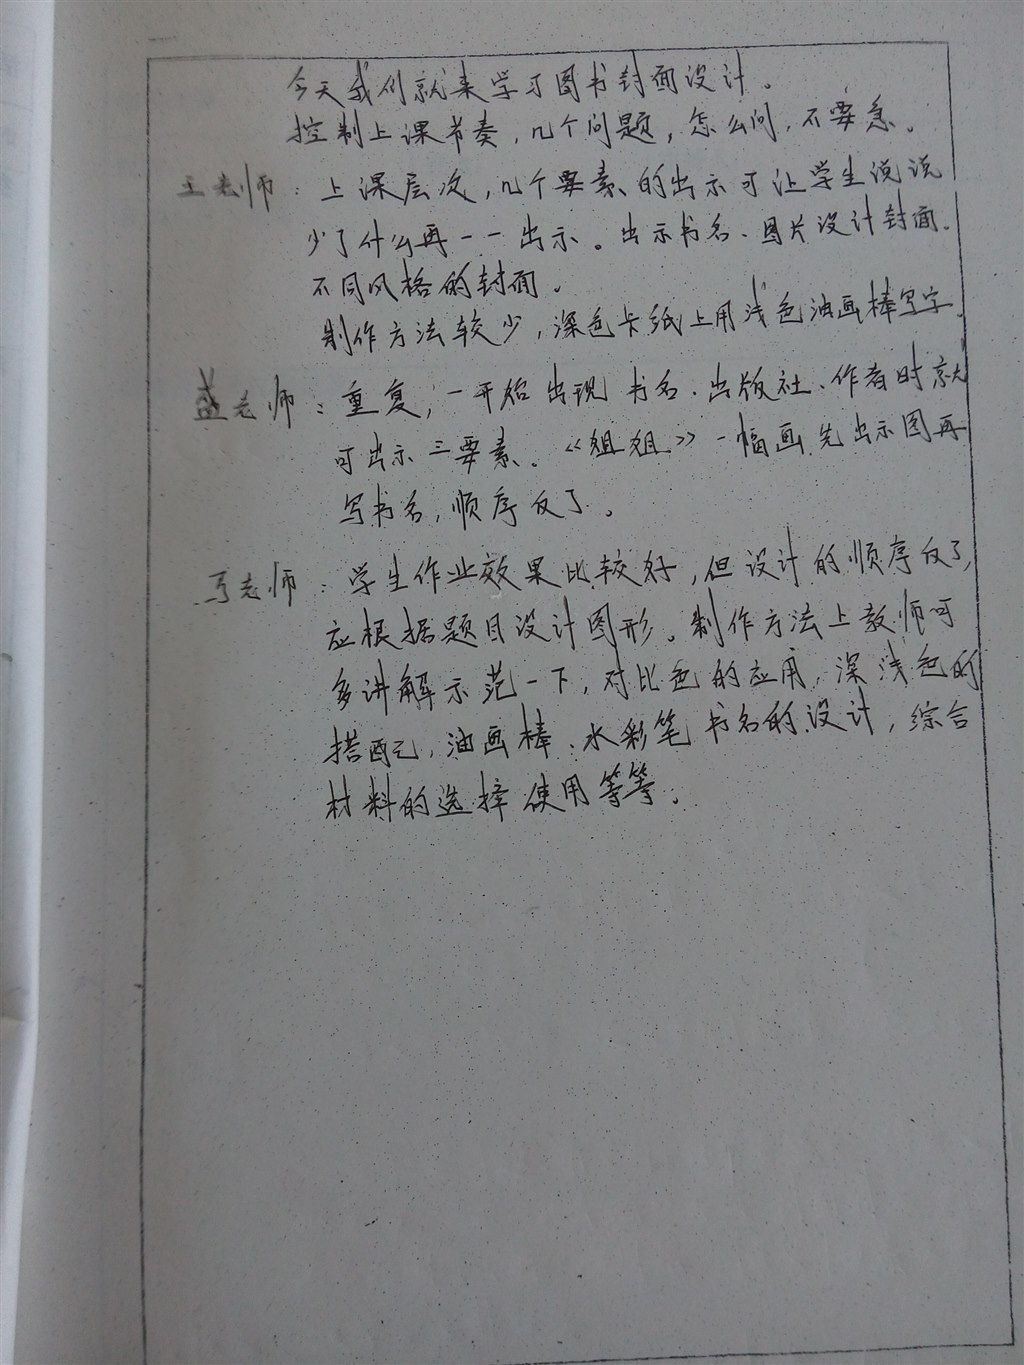 今天我们就来学习图书封面设计。
控制上课节奏,几个问题,怎么问,不要急。
王老师:上课层次,几个要素的出示可让学生说说
少了什么再一一出示。出示书名、图片设计封面。
不同风格的封面。
制作方法较少,深色卡纸上用浅色油画棒写字。
盛老师:重复,一开始出现书名、出版社、作者时就
可出示三要素。《姐姐》一幅画先出示图再
写书名,顺序反了。
老师:学生作业效果比较好,但设计的顺序反了,
应根据题目设计图形。制作方法上教师可
多讲解示范一下,对比色的应用,深浅色的
搭配,油画棒、水彩笔书名的设计,综合
材料的选择使用等等。